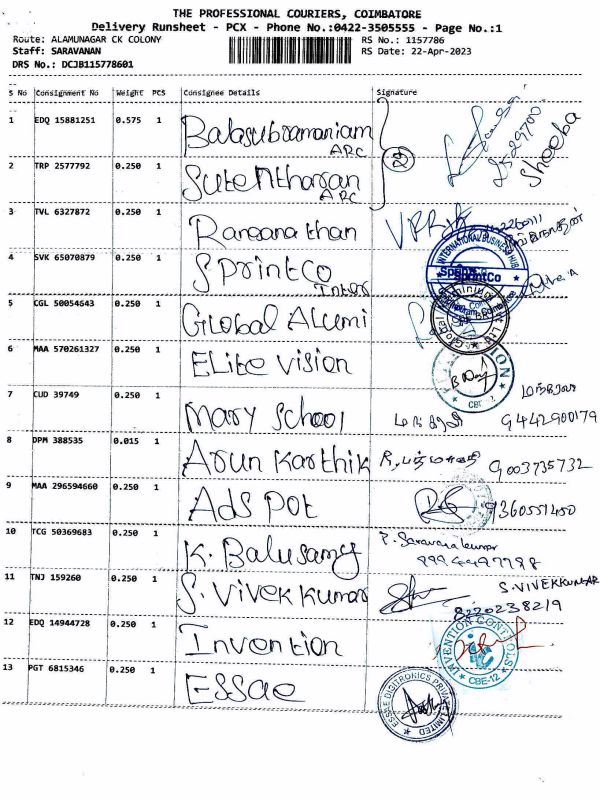 THE PROFESSIONAL COURIERS, COIMBATORE
Delivery Runsheet - PCX - Phone No.:0422-3505555 - Page No.:1
Route: ALAMUNAGAR CK COLONY RS No.: 1157786
Staff: SARAVANAN RS Date: 22-Apr-2023
DRS No.: DCJB115778601
S No Consignment No Weight PCS Consignee Details Signature
1 EDQ 15881251 0.575 1 Balasubramaniam
ARC Sheeba
2 TRP 2577792 0.250 1
ARC
3 TVL 6327872 0.250 1
4 SVK 65070879 0.250 1 Sprintco
INTERNATIONAL BUSINESS HUB
SprintCo
5 CGL 50054643 0.250 1 Global Alumi
6 MAA 570261327 0.250 1 Elite vision
7 CUD 39749 0.250 1 Mary School 9442900179
8 DPM 388535 0.015 1 Arun Karthik 9003735732
9 MAA 296594660 0.250 1 Ads Pot 9360551450
10 TCG 50369683 0.250 1 K. Balusamy P. Saravanakumar
11 TNJ 159260 0.250 1 S. Vivek kumar S.VIVEKKUMAR
8220238219
12 EDQ 14944728 0.250 1 Invention
INVENTION CONTROLS
CBE-12
13 PGT 6815346 0.250 1 Essae
ESSAE DIGITRONICS PRIVATE LIMITED